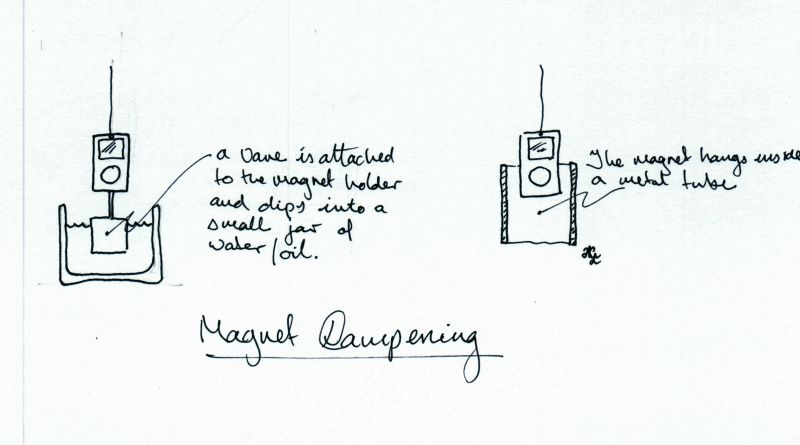 a vane is attached
to the magnet holder
and dips into a
small jar of
water/oil.
The magnet hangs inside
a metal tube
Magnet Dampening